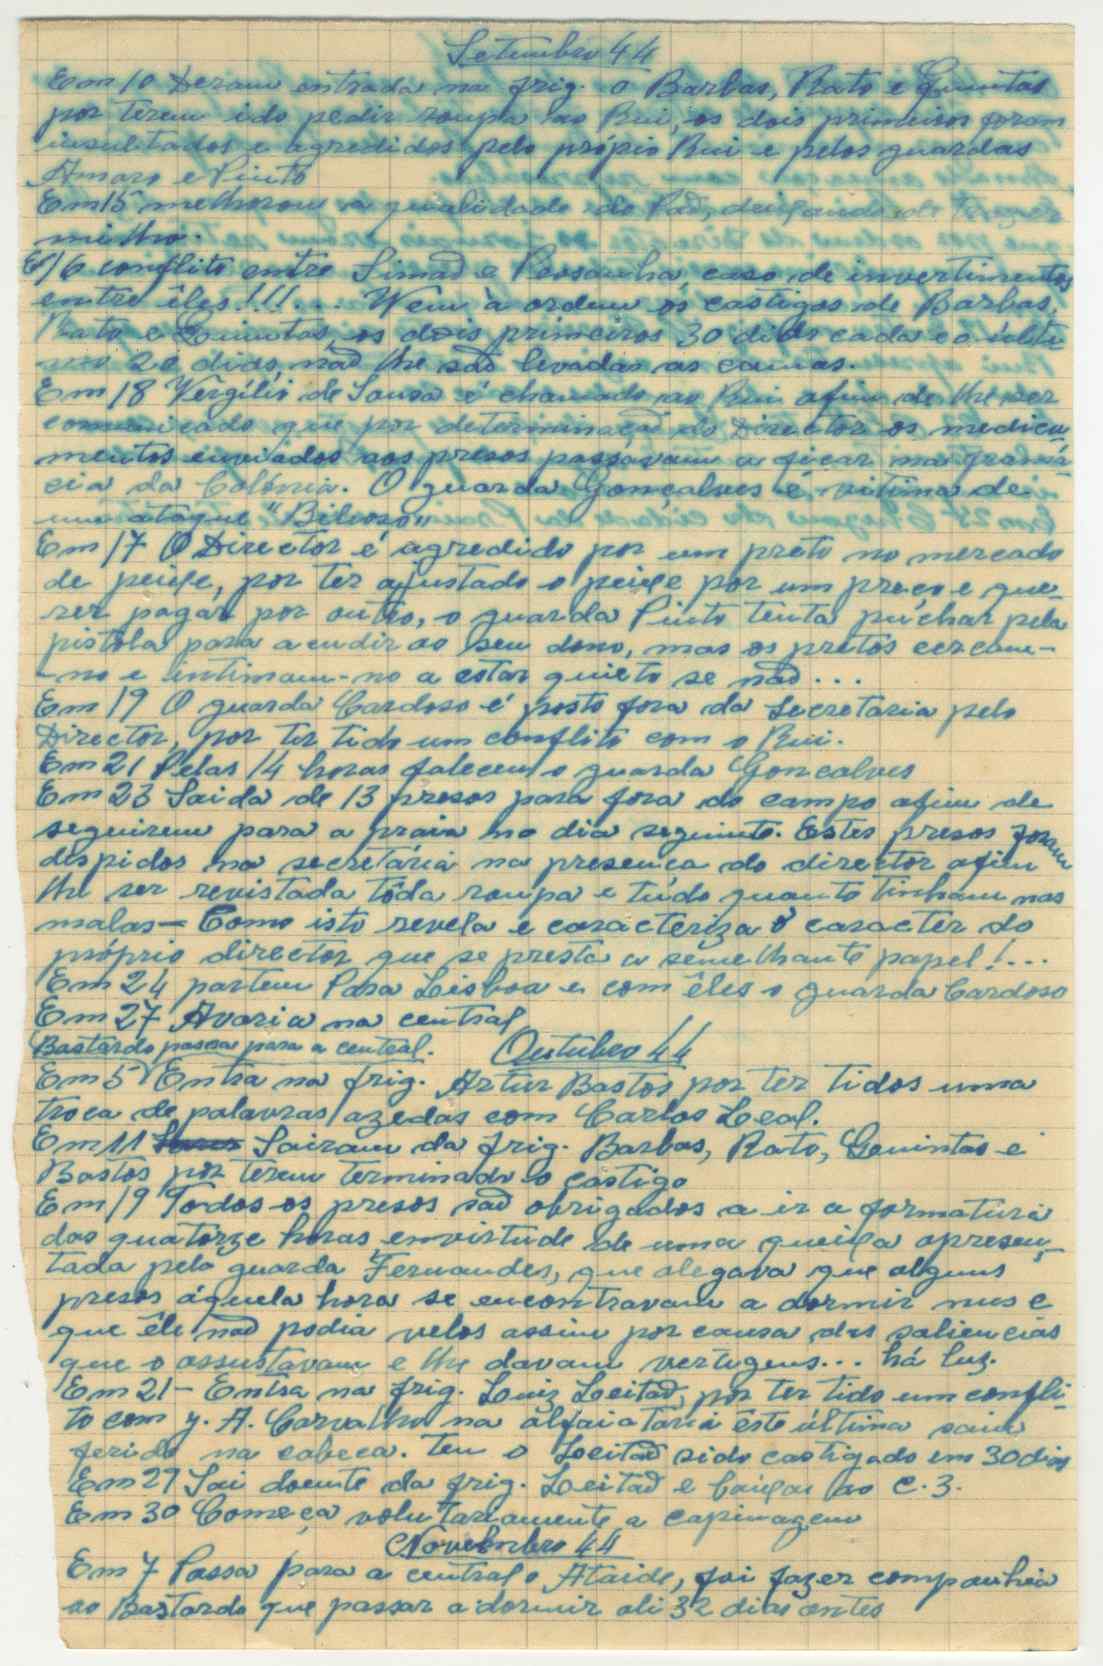 Setembro 44
Em 10 Deram entrada na frig. o Barbas, Rato e Quintas
por terem ido pedir roupa ao Rui, os dois primeiros foram
insultados e agredidos pelo próprio Rui e pelos guardas
Amaro e Pinto
Em 15 melhorou a qualidade do Pão, deixando de trazer
milho.
Em 16 conflito entre Simão e Pessanha, caso de invertimentos
entre êles!!!... Vem à ordem os castigos de Barbas,
Rato e Quintas, os dois primeiros 30 dias cada e o últi
mo 20 dias, não lhe são levadas as camas.
Em 18 Vergílio de Sousa é chamado ao Rui afim de lhe ser
comunicado que por determinação do Director os medica
mentos enviados aos presos passavam a ficar na framá
cia da Colónia. O guarda Gonçalves é vitima de
um ataque "Bilioso"
Em 17 O Director é agredido por um preto no mercado
de peixe, por ter ajustado o peixe por um preço e que-
rer pagar por outro, o guarda Pinto tenta puchar pela
pistola para acudir ao seu dono, mas os pretos cercam-
-no e intimam-no a estar quieto se não...
Em 19 O guarda Cardoso é posto fora da Secretaria pelo
Director, por ter tido um conflito com o Rui.
Em 21 Pelas 14 horas faleceu o guarda Gonçalves
Em 23 Saida de 13 presos para fora do campo afim de
seguirem para a praia no dia seguinte. Estes presos foram
despidos na secretária na presença do director afim
lhe ser revistada tôda roupa e tudo quanto tinham nas
malas — Como isto revela e caracteriza o caracter do
próprio director que se presta a semelhante papel!...
Em 24 partem Para Lisboa e com êles o guarda Cardoso
Em 27 Avaria na central
Bastardo passa para a central. Outubro 44
Em 5 Entra na frig. Artur Bastos por ter tidos uma
troca de palavras azedas com Carlos Leal.
Em 11 Sairam da frig. Barbas, Rato, Quintas e
Bastos por terem terminado o castigo
Em 19 Todos os presos são obrigados a ir a formatura
das quatorze horas emvirtude de uma queixa apresen-
tada pelo guarda Fernandes, que alegava que alguns
presos áquela hora se encontravam a dormir nus e
que êle não podia velos assim por causa das saliencias
que o assustavam e lhe davam vertigens... há luz.
Em 21 - Entra na frig. Luiz Leitão, por ter tido um confli-
to com J. A. Carvalho na alfaiataria êste última saiu
ferido na cabeça. Tem o Leitão sido castigado em 30 dias
Em 27 Sai doente da frig. Leitão e baixa ao C. 3.
Em 30 Começa voluntariamente a capinagem
Novembro 44
Em 7 Passa para a central o Ataide, foi fazer companhia
ao Bastardo que passar a dormir ali 32 dias antes